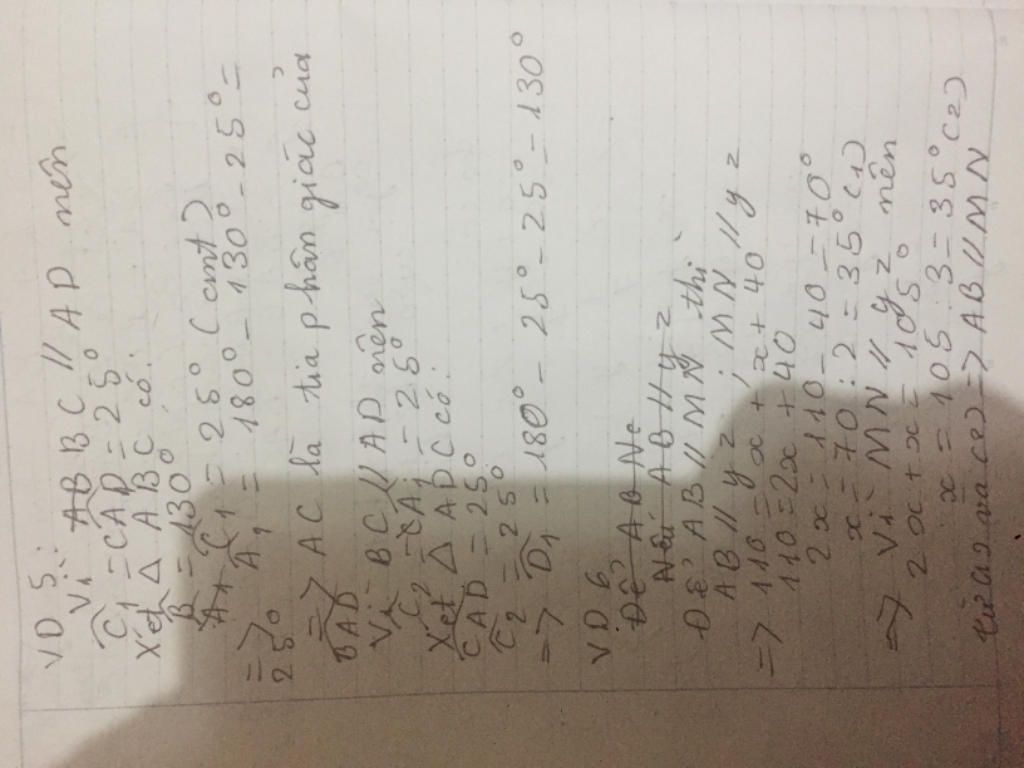 VD 5:
Vì: ABBC // AD nên
Ĉ1 = CÂD = 25°
Xét △ ABC có:
B̂ = 130°
Â1 = Ĉ1 = 25° (cmt)
=> Â1 = 180° - 130° - 25° =
25°
=> AC là tia phân giác của
BÂD
Vì BC // AD nên
Ĉ2 = Â1 = 25°
Xét △ ADC có:
CÂD = 25°
Ĉ2 = 25°
=> D̂1 = 180° - 25° - 25° = 130°
VD 6
Để AB Nc
Nối AB // yz
Để AB // MN thì
AB // yz; MN // yz
=> 110 = x + x + 40
110 = 2x + 40
2x = 110 - 40 = 70°
x = 70 : 2 = 35° (1)
=> Vì MN // yz nên
2x + x = 105°
x = 105 : 3 = 35° (2)
từ (1) và (2) => AB // MN